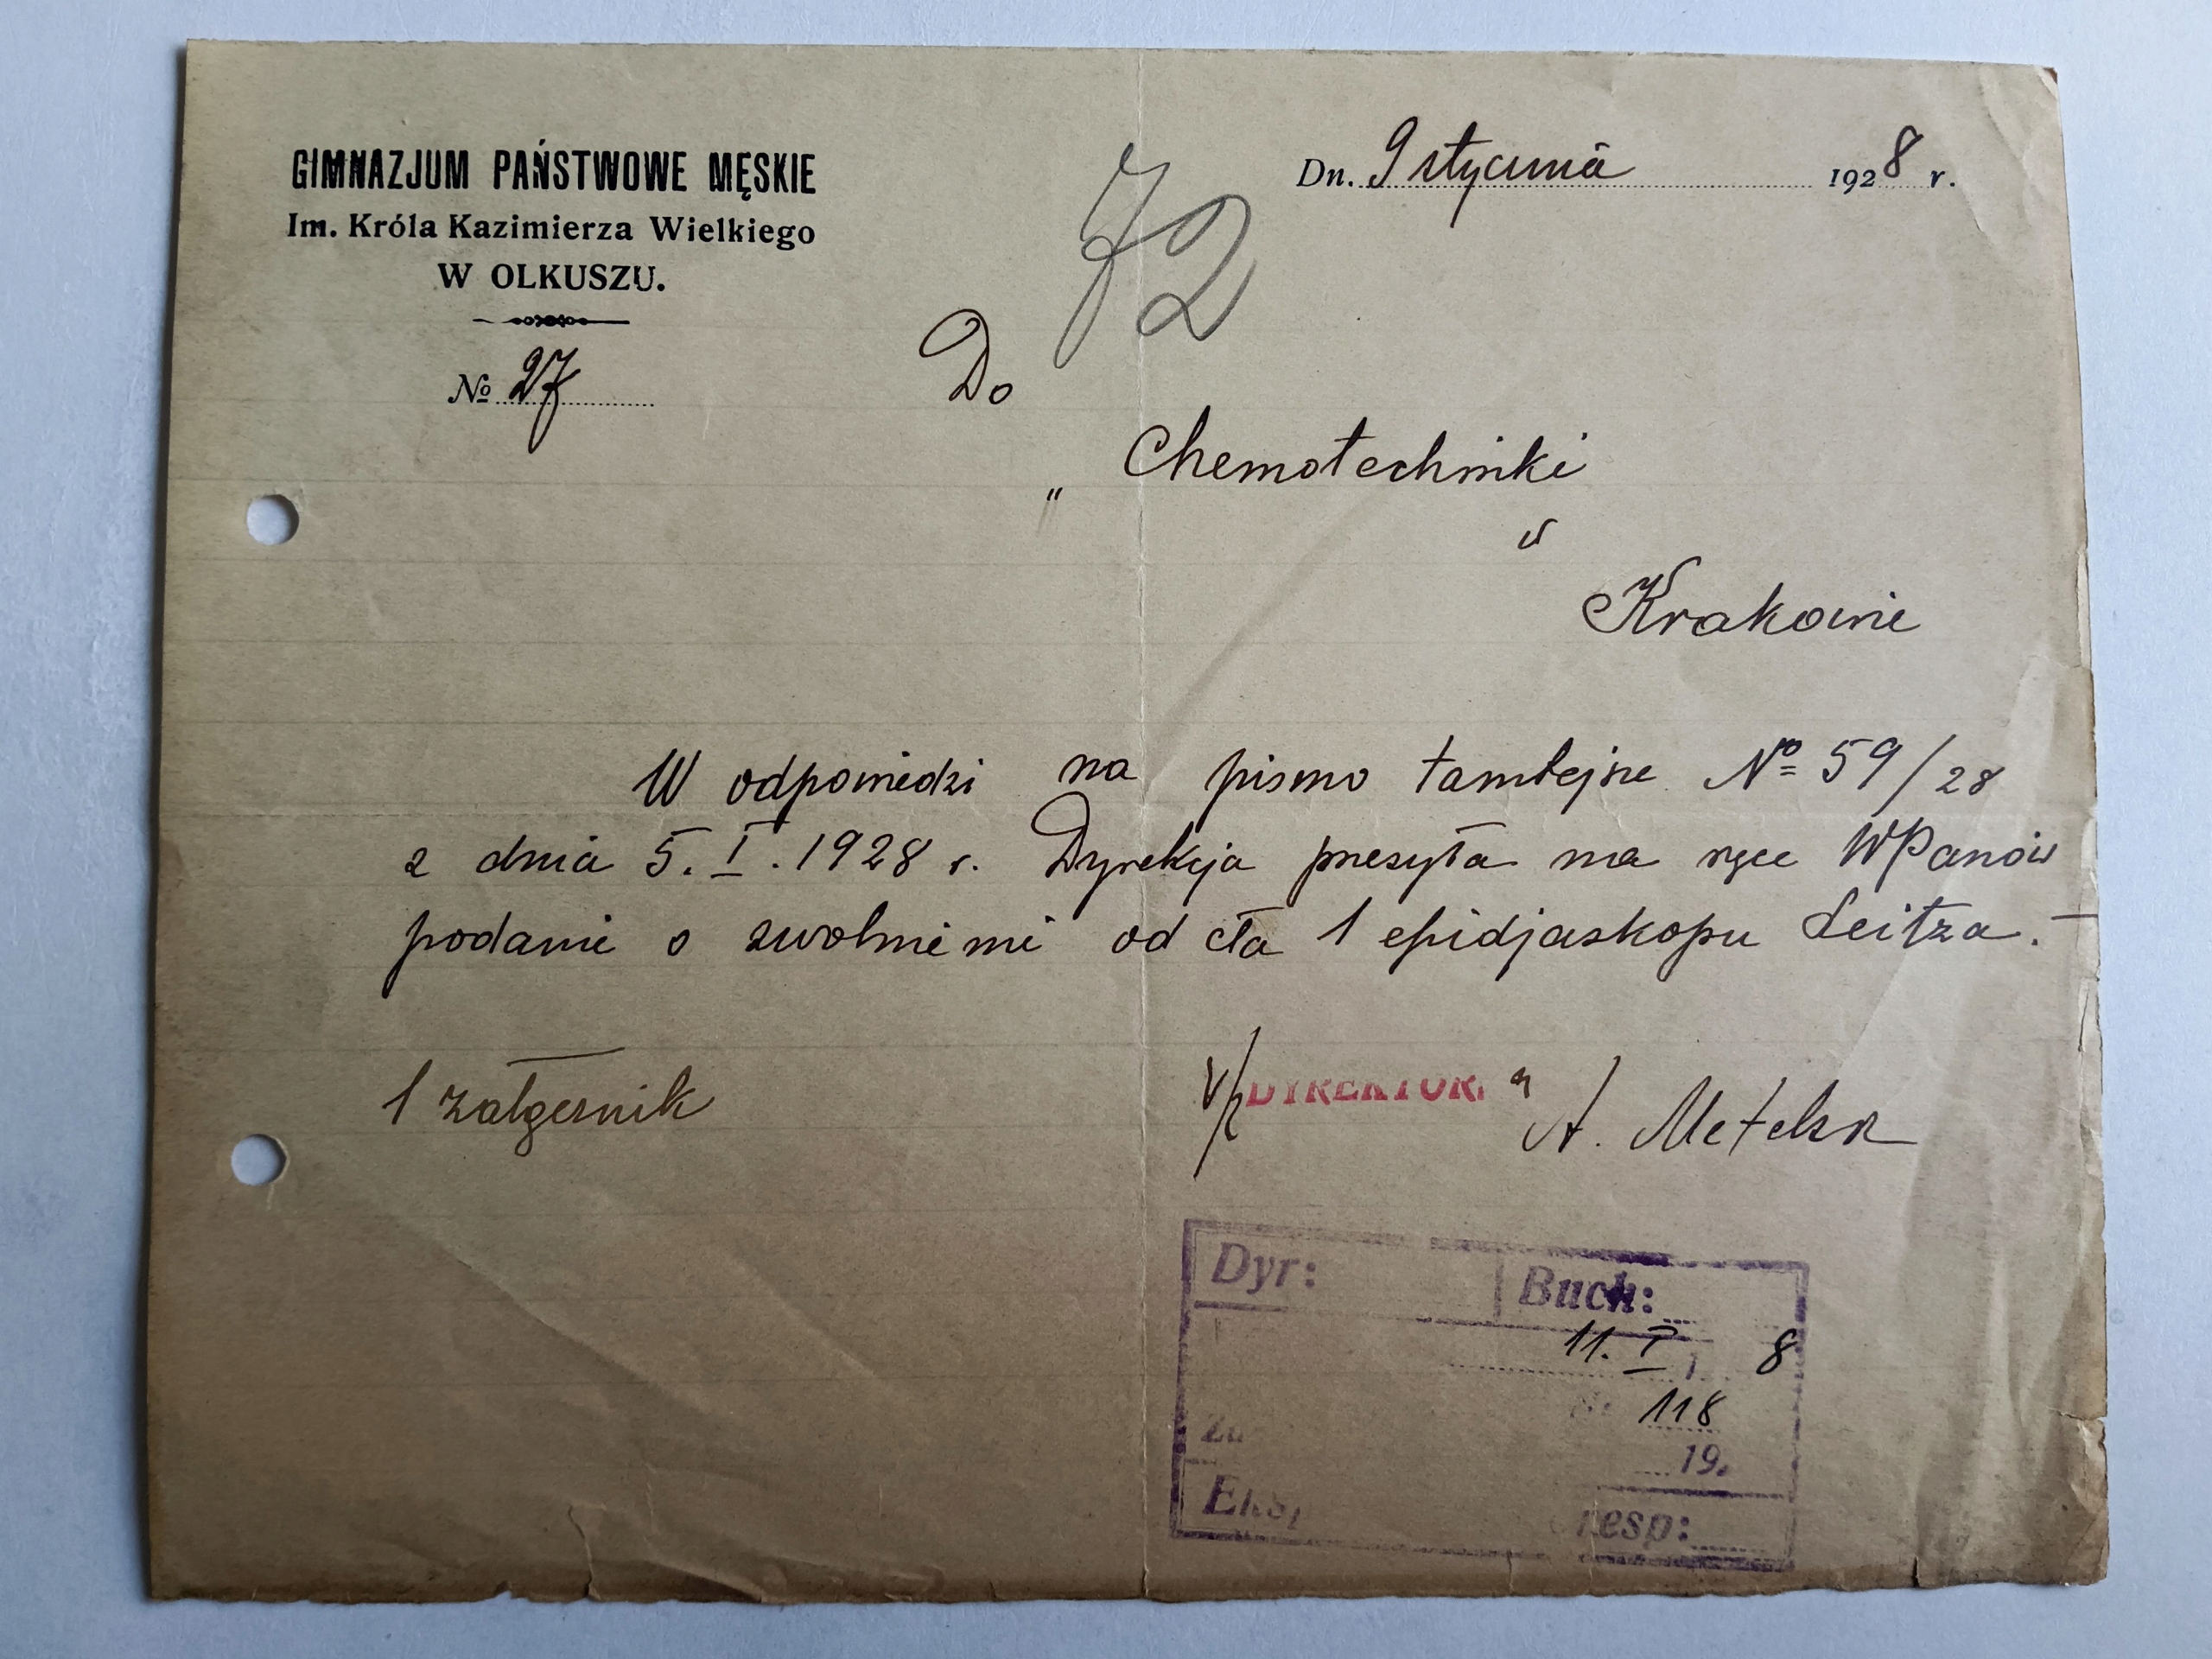 GIMNAZJUM PAŃSTWOWE MĘSKIE
Im. Króla Kazimierza Wielkiego
W OLKUSZU.
Dn. 9 stycznia 1928 r.
72
№ 27
Do
„Chemotechniki"
w
Krakowie
W odpowiedzi na pismo tamtejsze № 59/28
z dnia 5. I. 1928 r. Dyrekcja przesyła na ręce WPanów
podanie o zwolnienie od cła 1 epidjaskopu Leitza.
1 załącznik
DYREKTOR
A. Metelski
Dyr: Buch:
11. I 8
118
19
Eksp resp: